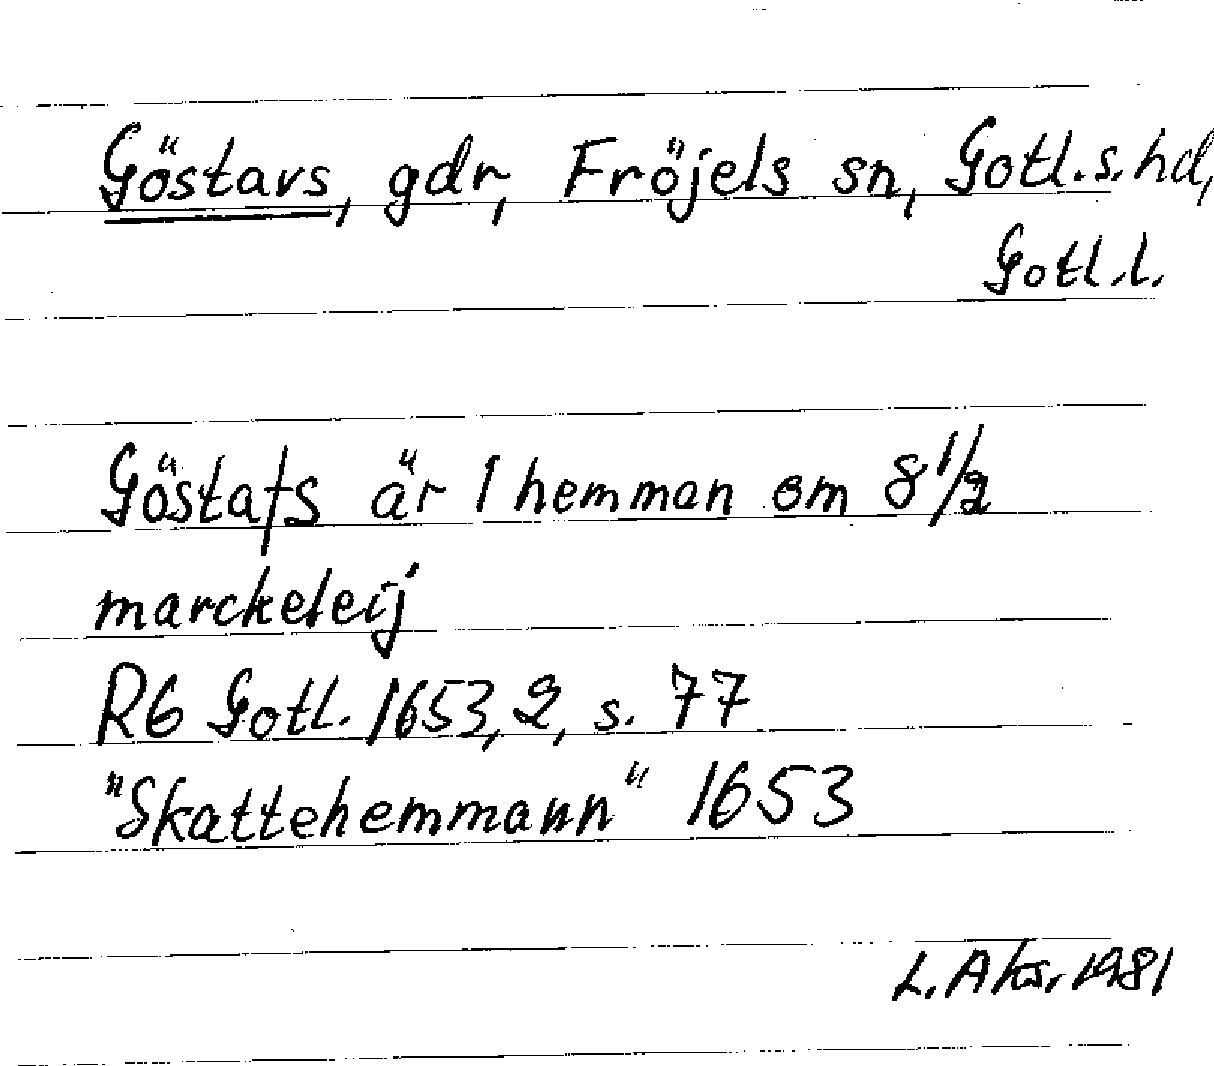 Göstavs, gdr, Fröjels sn, Gotl.s.hd,
Gotl.l.
Göstafs är 1 hemman om 8 1/2
marckeleij
R6 Gotl. 1653,2, s. 77
"Skattehemmann" 1653
L. Aks. 1981